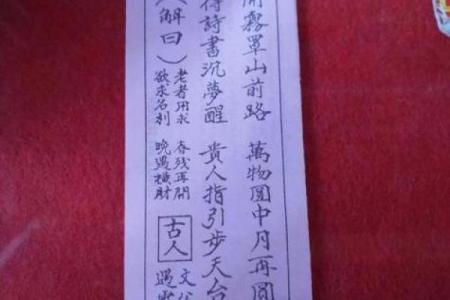 開霧罩山前路 萬物圓中月再圓
待詩書沉夢醒 貴人指引步天台
解曰)
老者用求 春残再開
欲求名利 晚遇橫財
古人
文公
遇